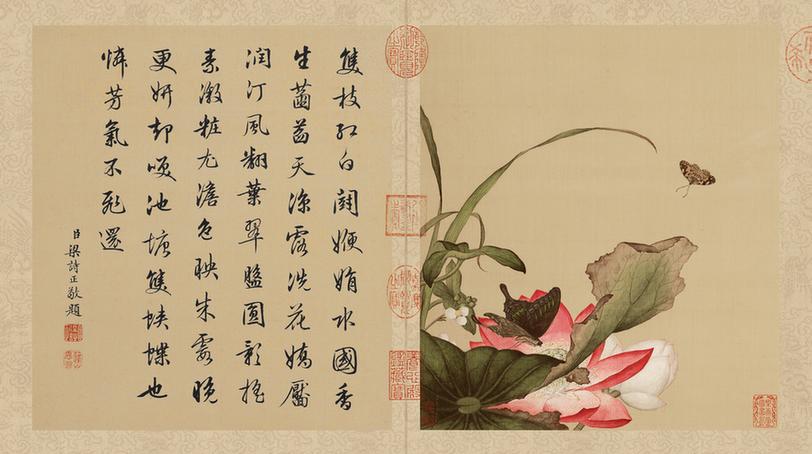 雙枝紅白鬪㛹娟水國香
生菡萏天涼露洗花嬌靨
潤汀風翻葉翠盤圓影搖
素瀲粧尤澹色映朱霞晚
更妍却喚池塘雙蛺蝶也
憐芳氣不飛還
臣梁詩正敬題